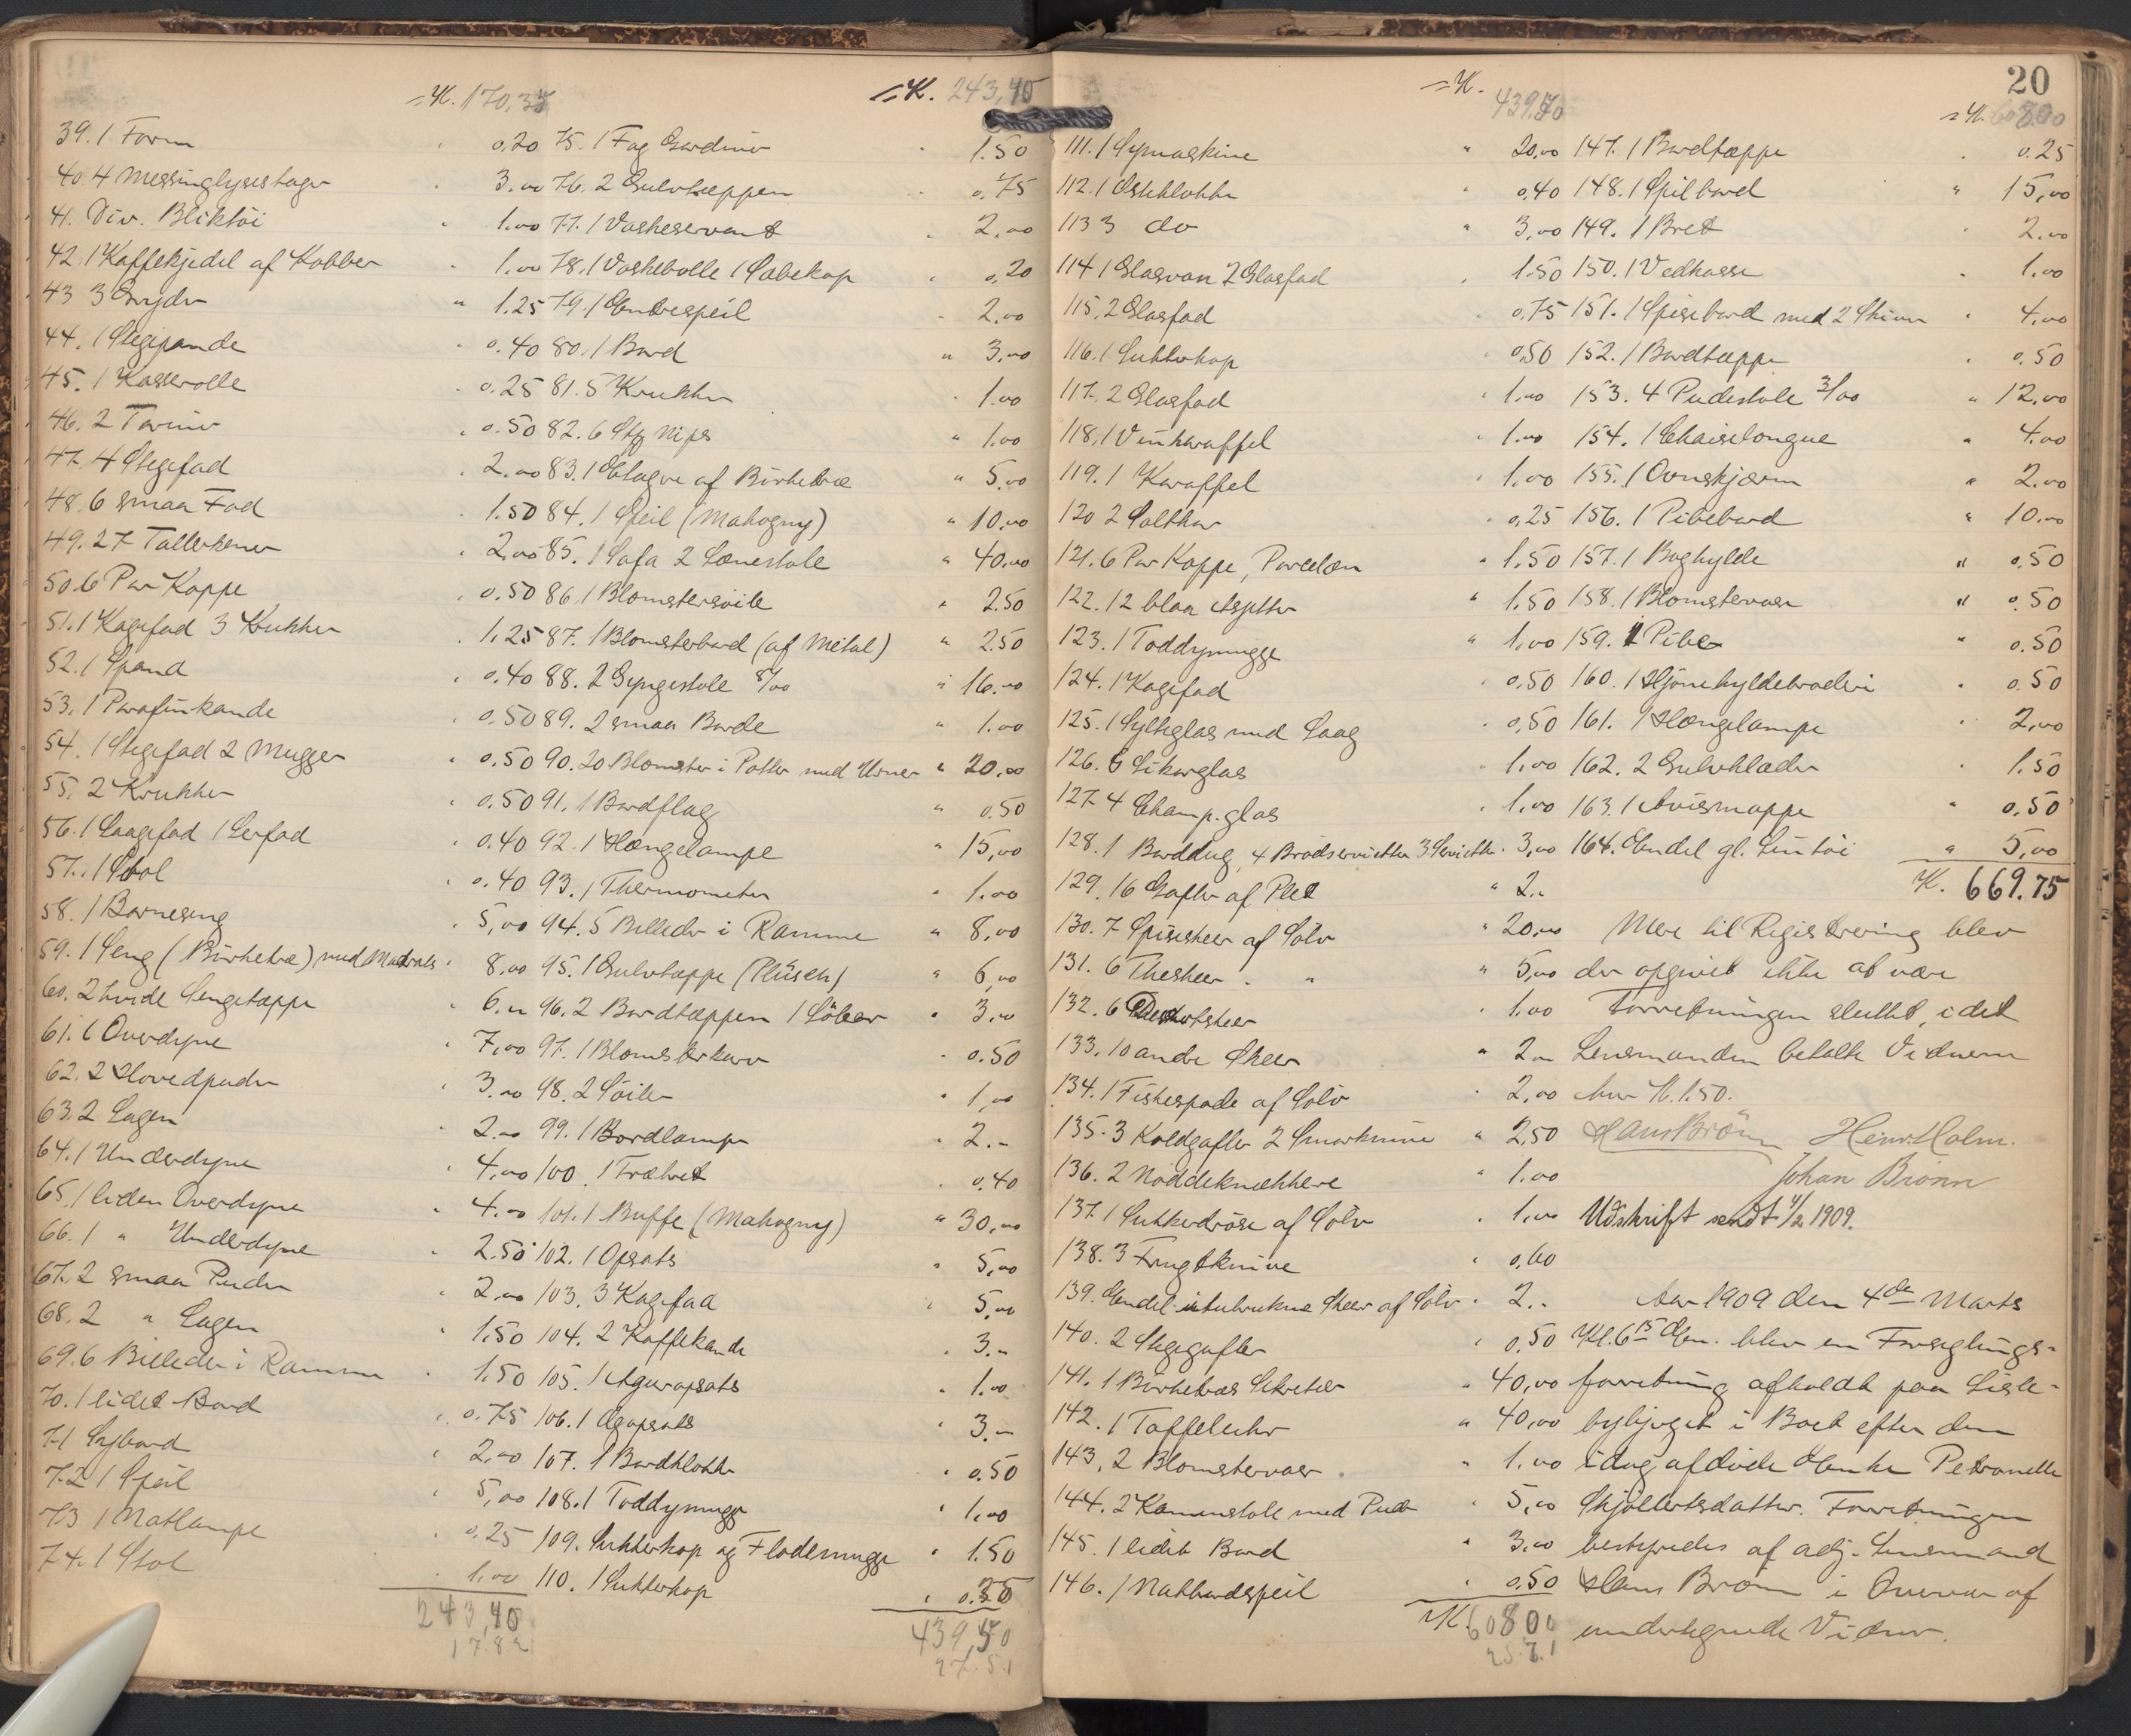 K. 170,35
39. 1 Form " 0.20
40. 4 Messinglysestager " 3.00
41. Div. Bliktøi " 1.00
42. 1 Kaffekjedel af Kobber " 1.00
43 3 Gryder " 1.25
44. 1 Stegepande " 0.40
45. 1 Kasserolle " 0.25
46. 2 Teriner " 0.50
47. 4 Stegefad " 2.00
48. 6 smaa Fad " 1.50
49. 27 Tallerkener " 2.00
50. 6 Par Koppe " 0.50
51. 1 Kagefad 3 Krukker " 1.25
52. 1 Spand " 0.40
53. 1 Parafinkande " 0.50
54. 1 Stegefad 2 Mugger " 0.50
55. 2 Krukker " 0.50
56. 1 Laagefad 1 Lerfad " 0.40
57. 1 Stol " 0.40
58. 1 Barneseng " 5,00
59. 1 Seng (Birketræ) med Madrats " 8,00
60. 2 hvide Sengetæppe " 6.00
61. 1 Overdyne " 7,00
62. 2 Hovedpuder " 3.00
63. 2 Lagen " 2.00
64. 1 Underdyne " 4,00
65. 1 liden Overdyne " 4.00
66. 1 " Underdyne " 2.50
67. 2 smaa Puder " 2.00
68. 2 " Lagen " 1.50
69. 6 Billeder i Ramme " 1.50
70. 1 lidet Bord " 0.75
71 Sybord " 2,00
72 1 Speil " 5,00
73 1 Natlampe " 0.25
74. 1 Stol " 1.00
243,40
17.82
K. 243,40
75. 1 Fag Gardiner " 1.50
76. 2 Gulvtæppen " 0,75
77. 1 Vaskeservant " 2,00
78. 1 Vaskebolle 1 Sæbekop " 0,20
79. 1 Entrespeil " 2.00
80. 1 Bord " 3.00
81. 5 Krukker " 1.00
82. 6 Stk Nips " 1.00
83. 1 Etagere af Birketræ " 5,00
84. 1 Speil (Mahogny) " 10,00
85. 1 Sofa 2 Lænestole " 40,00
86. 1 Blomstersøile " 2.50
87. 1 Blomsterbord (af Metal) " 2.50
88. 2 Gyngestole 8/00 " 16.00
89. 2 smaa Borde " 1.00
90. 20 Blomster i Potter med Urner " 20.00
91. 1 Bordflag " 0.50
92. 1 Hængelampe " 15,00
93. 1 Thermometer " 1.00
94. 5 Billeder i Ramme " 8,00
95. 1 Gulvtæppe (Plüsch) " 6,00
96. 2 Bordtæppen 1 Løber " 3,00
97. 1 Blomsterkurv " 0.50
98. 2 Søiler " 1,00
99. 1 Bordlampe " 2.-
100. 1 Trækret " 0.40
101. 1 Buffe (Mahogny) " 30,00
102. 1 Opsats " 5,00
103. 3 Kagefad " 5,00
104. 2 Kaffekande " 3.-
105. 1 Aguropsats " 1.00
106. 1 Ægopsats " 3.-
107. 1 Bordklokke " 0.50
108. 1 Toddymugge " 1,00
109. Sukkerkop og Flødemugge " 1.50
110. 1 Sukkerkop " 0.35
439,50
27.51
K. 439.70
111. 1 Symaskine " 20,00
112. 1 Osteklokke " 0,40
113 3 do " 3,00
114 1 Glasvan 2 Glasfad " 1.50
115, 2 Glasfad " 0.75
116. 1 Sukkerkop " 0.50
117. 2 Glasfad " 1,00
118. 1 Vinkaraffel " 1.00
119. 1 Karaffel " 1,00
120 2 Saltkar " 0,25
121. 6 Par Koppe, Porcelæn " 1,50
122. 12 blaa Asjetter " 1.50
123. 1 Toddymugge " 1,00
124. 1 Kagefad " 0,50
125. 1 Sylteglas med Laag " 0,50
126. 6 Likørglas " 1,00
127 4 Champ.glas " 1,00
128. 1 Borddug, 4 Brødservietter 3 Servietter " 3,00
129. 16 Gafler af Plet " 2.-
130. 7 Spiseskeer af Sølv " 20,00
131. 6 Theskeer " " " 5,00
132. 6 Dessertskeer " 1.00
133. 10 andre Skeer " 2.-
134. 1 Fiskespade af Sølv " 2,00
135. 3 Koldgafler 2 Smørknive " 2,50
136. 2 Nøddeknækkere " 1.00
137. 1 Sukkerdrøse af Sølv " 1,00
138. 3 Frugtknive " 0,60
139. Endel istubrukne Skeer af Sølv " 2.-
140. 2 Stegegafler " 0.50
141. 1 Birketræs Sekretær " 40,00
142. 1 Taffeluhr " 40,00
143, 2 Blomstervaser " 1.00
144. 2 Kurvestole med Puder " 5,00
145. 1 lidet Bord " 3.00
146. 1 Natbordspeil " 0.50
K. 608 00
25.71
20
K. 608.00
147. 1 Bordtæppe " 0.25
148. 1 Spilbord " 15,00
149. 1 Bret " 2.00
150. 1 Vedkasse " 1.00
151. 1 Spisebord med 2 Skiver " 4,00
152. 1 Bordtæppe " 0.50
153. 4 Pudestole 3/00 " 12.00
154. 1 Chaiselongue " 4.00
155. 1 Ovnskjærm " 2.00
156. 1 Pibebord " 10.00
157. 1 Boghylde " 0.50
158. 1 Blomstervase " 0.50
159. 1 Pibe " 0.50
160. 1 Hjørnehyldebroderi " 0.50
161. 1 Hængelampe " 2,00
162. 2 Gulvklæder " 1.50
163. 1 Avismappe " 0,50
164. Endel gl. Lintøi " 5,00
K. 669.75
Mere til Registrering blev
der opgivet ikke at være
Forretningen sluttet, idet
Lensmanden betalte Vidnerne
hver K. 1.50.
Hans Brønn Henr. Holm.
Johan Brønn
Udskrift sendt 4/2 1909.
Aar 1909 den 4de Marts
Kl. 6 15 Em. blev en Forseglings-
forretning afholdt paa Lisle-
bybjerget i Boet efter den
idag afdøde Enke Petronelle
Skjøllertsdatter. Forretningen
bestyredes af adj. Lensmand
Hans Brønn i Overvær af
undertegnede Vidner.